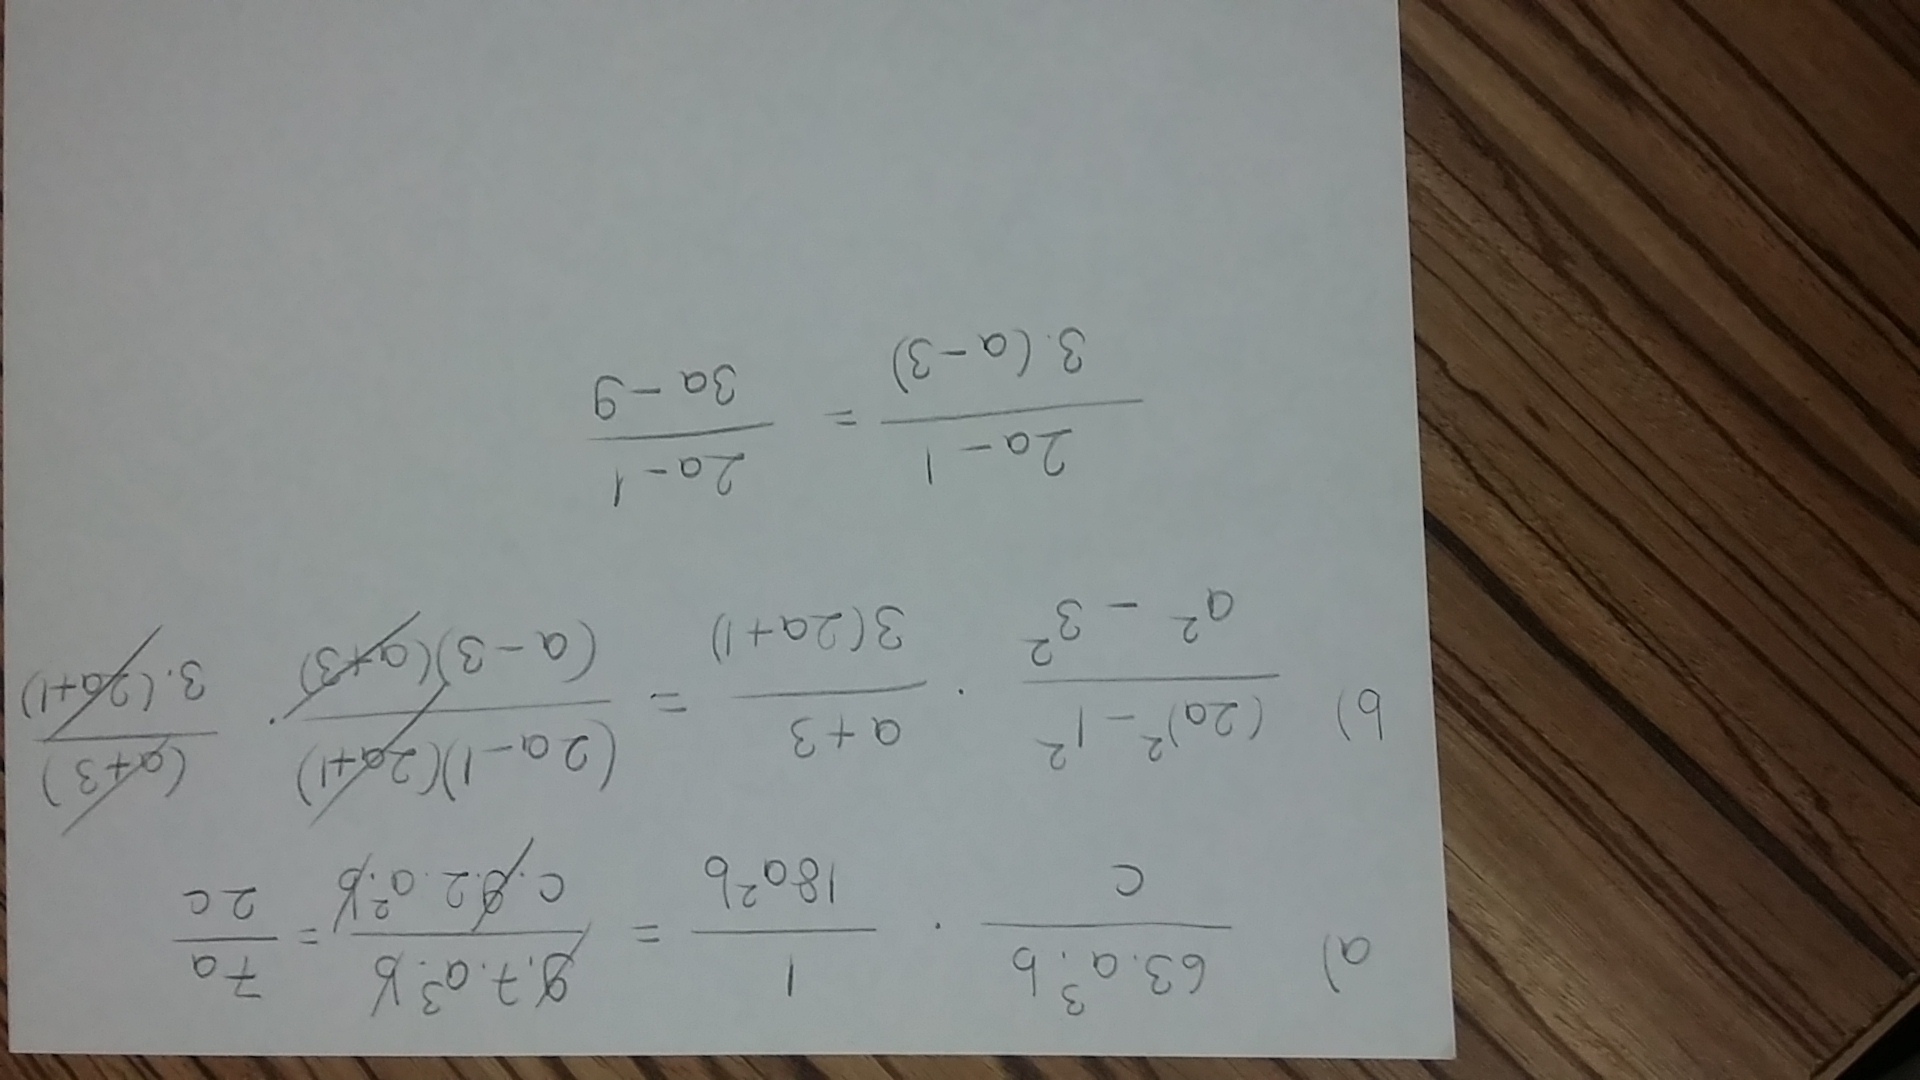 a) 63.a³.b / c · 1 / 18a²b = 9.7.a³.b / c.9.2.a².b = 7a / 2c
b) (2a)² - 1² / a² - 3² · a+3 / 3(2a+1) = (2a-1)(2a+1) / (a-3)(a+3) · (a+3) / 3.(2a+1)
2a-1 / 3.(a-3) = 2a-1 / 3a-9